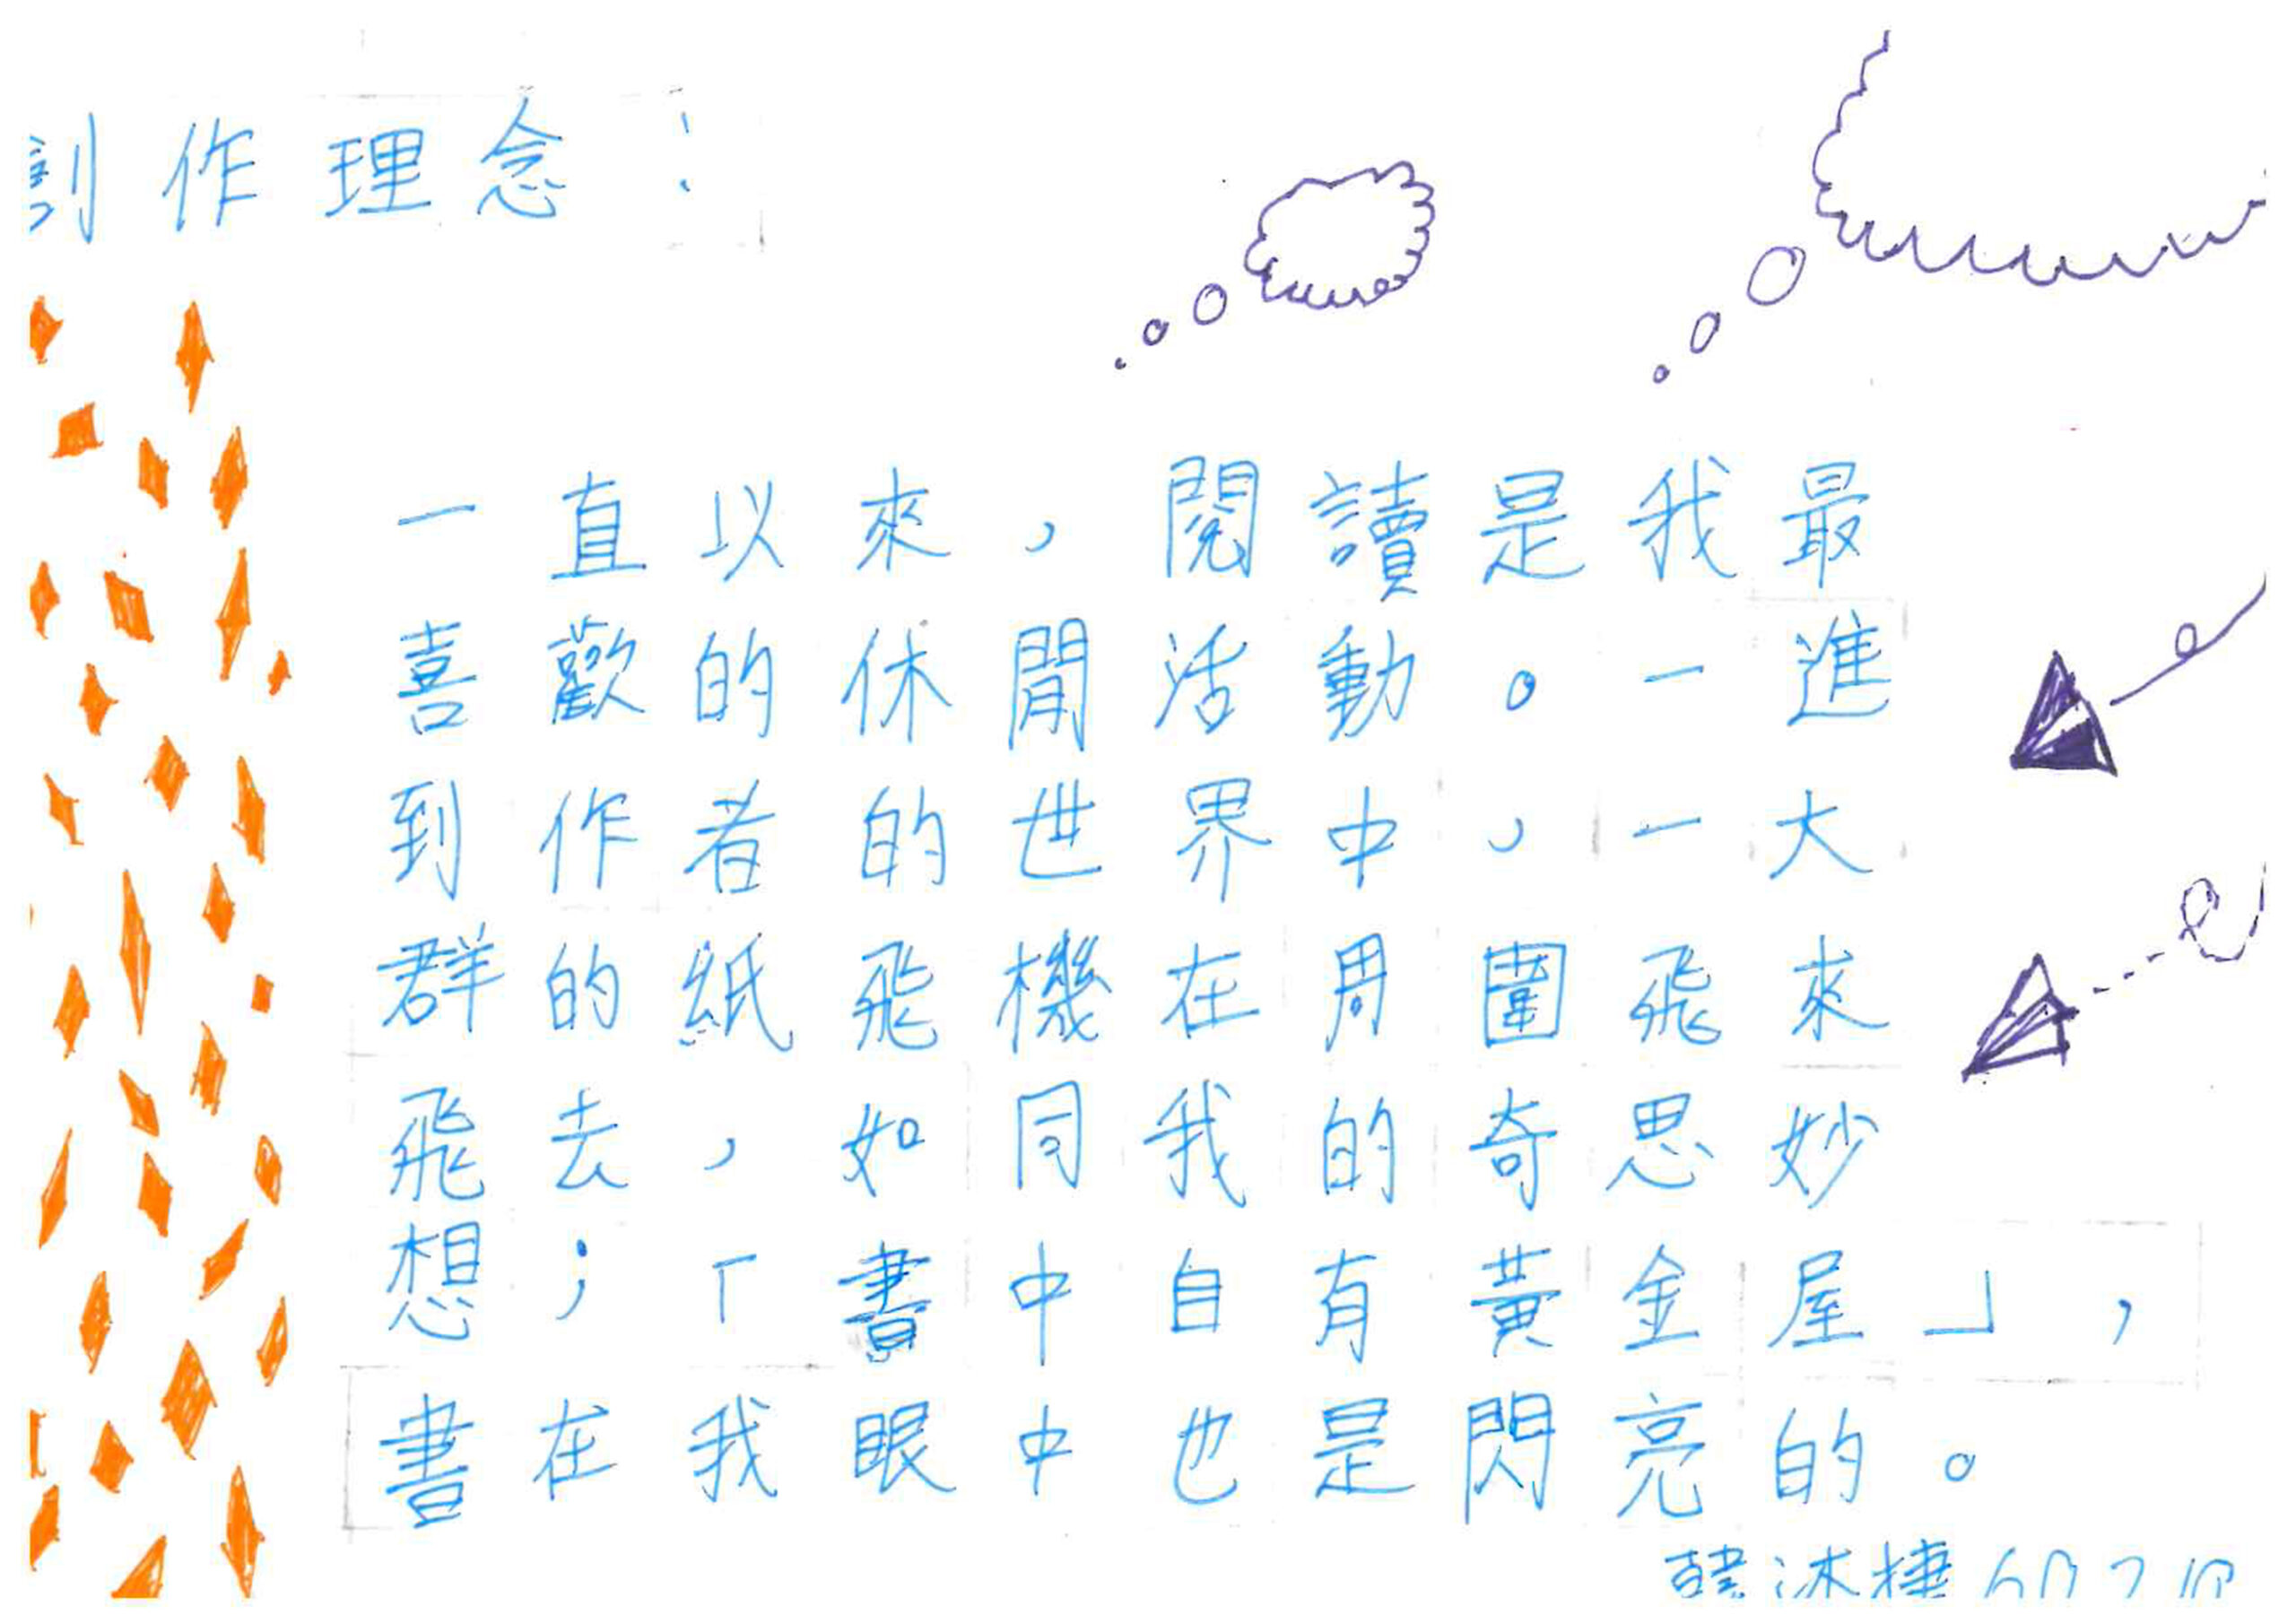 創作理念：
一直以來，閱讀是我最
喜歡的休閒活動。一進
到作者的世界中，一大
群的紙飛機在周圍飛來
飛去，如同我的奇思妙
想；「書中自有黃金屋」，
書在我眼中也是閃亮的。
韓沐捷